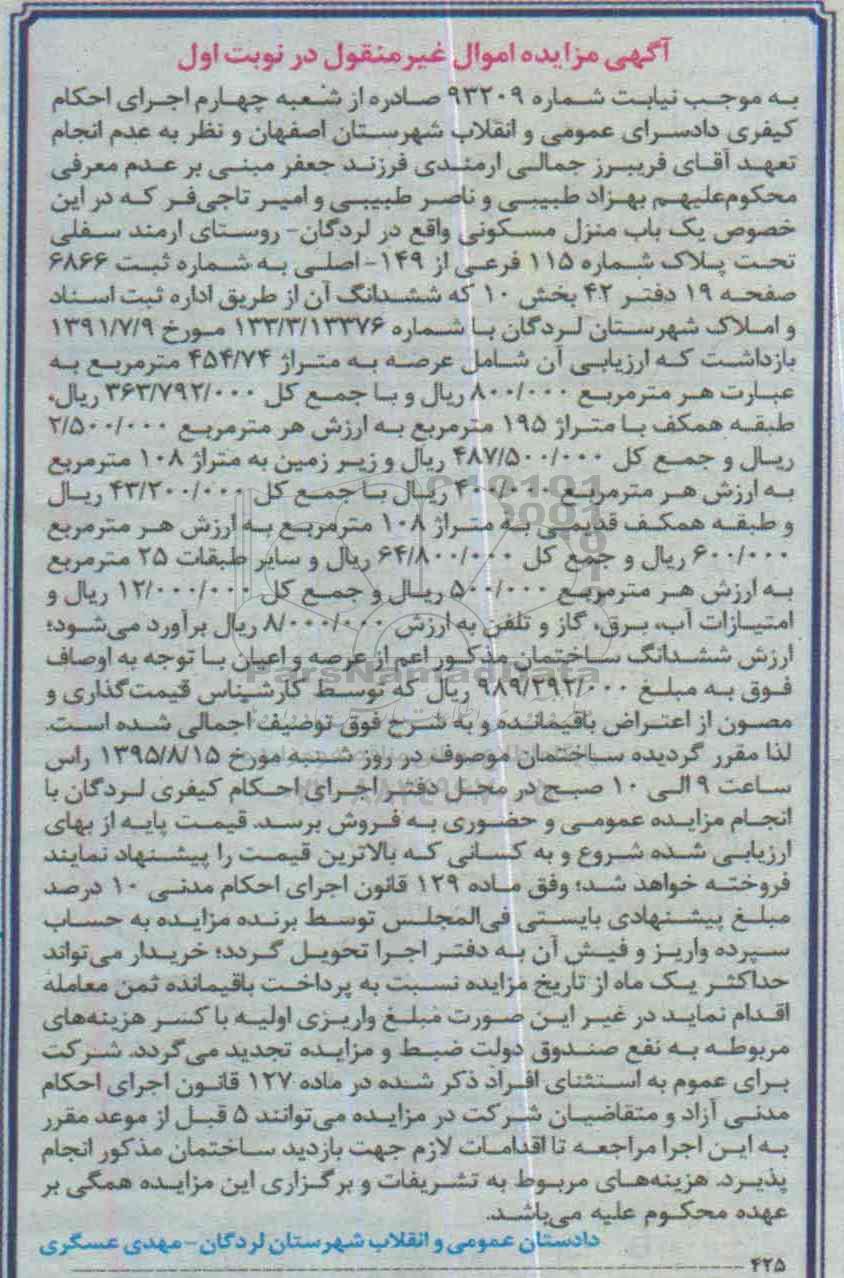 آگهی مزایده اموال غیرمنقول در نوبت اول
به موجب نیابت شماره ۹۳۲۰۹ صادره از شعبه چهارم اجرای احکام
کیفری دادسرای عمومی و انقلاب شهرستان اصفهان و نظر به عدم انجام
تعهد آقای فریبرز جمالی ارمندی فرزند جعفر مبنی بر عدم معرفی
محکوم‌علیهم بهزاد طبیبی و ناصر طبیبی و امیر تاجی‌فر که در این
خصوص یک باب منزل مسکونی واقع در لردگان- روستای ارمند سفلی
تحت پلاک شماره ۱۱۵ فرعی از ۱۴۹- اصلی به شماره ثبت ۶۸۶۶
صفحه ۱۹ دفتر ۴۲ بخش ۱۰ که ششدانگ آن از طریق اداره ثبت اسناد
و املاک شهرستان لردگان با شماره ۱۳۳/۳/۱۳۳۷۶ مورخ ۱۳۹۱/۷/۹
بازداشت که ارزیابی آن شامل عرصه به متراژ ۴۵۴/۷۴ مترمربع به
عبارت هر مترمربع ۸۰۰/۰۰۰ ریال و با جمع کل ۳۶۳/۷۹۲/۰۰۰ ریال،
طبقه همکف با متراژ ۱۹۵ مترمربع به ارزش هر مترمربع ۲/۵۰۰/۰۰۰
ریال و جمع کل ۴۸۷/۵۰۰/۰۰۰ ریال و زیر زمین به متراژ ۱۰۸ مترمربع
به ارزش هر مترمربع ۴۰۰/۰۰۰ ریال با جمع کل ۴۳/۲۰۰/۰۰۰ ریال
و طبقه همکف قدیمی به متراژ ۱۰۸ مترمربع به ارزش هر مترمربع
۶۰۰/۰۰۰ ریال و جمع کل ۶۴/۸۰۰/۰۰۰ ریال و سایر طبقات ۲۵ مترمربع
به ارزش هر مترمربع ۵۰۰/۰۰۰ ریال و جمع کل ۱۲/۰۰۰/۰۰۰ ریال و
امتیازات آب، برق، گاز و تلفن به ارزش ۸/۰۰۰/۰۰۰ ریال برآورد می‌شود؛
ارزش ششدانگ ساختمان مذکور اعم از عرصه و اعیان با توجه به اوصاف
فوق به مبلغ ۹۸۹/۲۹۲/۰۰۰ ریال که توسط کارشناس قیمت‌گذاری و
مصون از اعتراض باقیمانده و به شرح فوق توصیف اجمالی شده است.
لذا مقرر گردیده ساختمان موصوف در روز شنبه مورخ ۱۳۹۵/۸/۱۵ راس
ساعت ۹ الی ۱۰ صبح در محل دفتر اجرای احکام کیفری لردگان با
انجام مزایده عمومی و حضوری به فروش برسد. قیمت پایه از بهای
ارزیابی شده شروع و به کسانی که بالاترین قیمت را پیشنهاد نمایند
فروخته خواهد شد؛ وفق ماده ۱۲۹ قانون اجرای احکام مدنی ۱۰ درصد
مبلغ پیشنهادی بایستی فی‌المجلس توسط برنده مزایده به حساب
سپرده واریز و فیش آن به دفتر اجرا تحویل گردد؛ خریدار می‌تواند
حداکثر یک ماه از تاریخ مزایده نسبت به پرداخت باقیمانده ثمن معامله
اقدام نماید در غیر این صورت مبلغ واریزی اولیه با کسر هزینه‌های
مربوطه به نفع صندوق دولت ضبط و مزایده تجدید می‌گردد. شرکت
برای عموم به استثنای افراد ذکر شده در ماده ۱۲۷ قانون اجرای احکام
مدنی آزاد و متقاضیان شرکت در مزایده می‌توانند ۵ قبل از موعد مقرر
به این اجرا مراجعه تا اقدامات لازم جهت بازدید ساختمان مذکور انجام
پذیرد. هزینه‌های مربوط به تشریفات و برگزاری این مزایده همگی بر
عهده محکوم علیه می‌باشد.
دادستان عمومی و انقلاب شهرستان لردگان-مهدی عسگری
۴۲۵
ParsNamadData